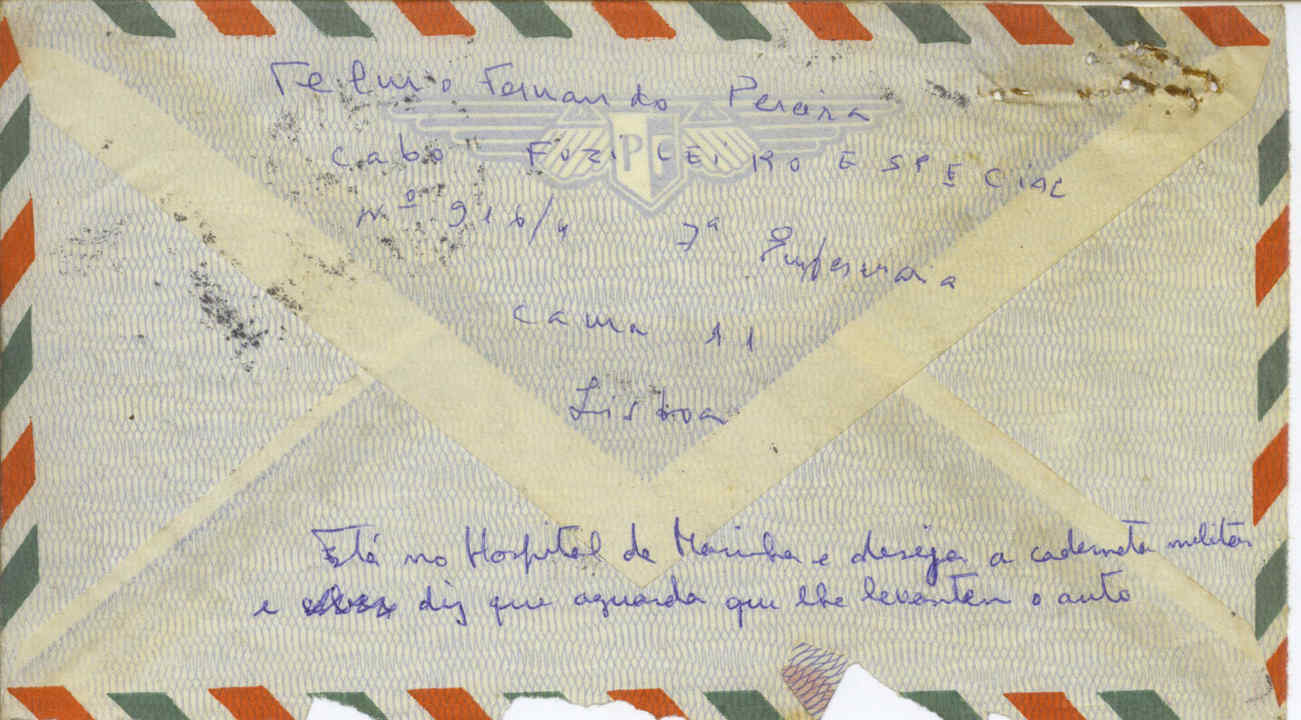 Telmo Fernando Pereira
PF
Cabo FUZILEIRO ESPECIAL
Nº 916/4 7ª Enfermaria
cama 11
Lisboa
Está no Hospital da Marinha e deseja a caderneta militar
e diz que aguarda que lhe levantem o auto